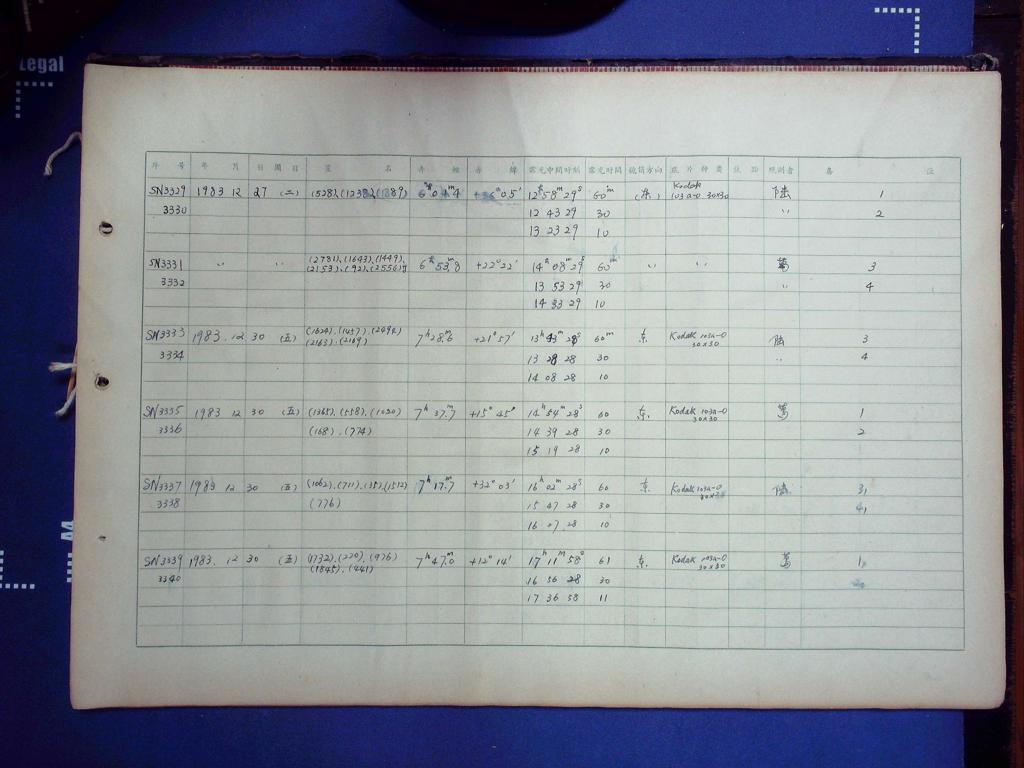 Legal
序 号 年 月 日 周 日 星 名 赤 經 赤 緯 露光中間时刻 露光时间 鏡筒方向 底 片 种 类 观測者 备 注
SN3329 1983 12 27 (二) (528), (1238), (1389) 6h 04.4m +36° 05′ 12h 58m 29s 60m (东) Kodak 103a-O 30×30 陆 1
3330 12 43 29 30 〃 2
13 23 29 10
SN3331 〃 〃 (2781), (1643), (1449), (2153), (92), (2556) 6h 53.8m +22° 22′ 14h 08m 29s 60m 〃 〃 萬 3
3332 13 53 29 30 〃 4
14 33 29 10
SN3333 1983. 12 30 (五) (1624), (1457), (2494) (2163), (2169) 7h 28.6m +21° 57′ 13h 43m 28s 60m 东 Kodak 103a-O 30×30 陆 3
3334 13 28 28 30 〃 4
14 08 28 10
SN3335 1983 12 30 (五) (1365), (558), (1020) 7h 37.7m +15° 45′ 14h 54m 28s 60 东. Kodak 103a-O 30×30 萬 1
3336 (168), (774) 14 39 28 30 2
15 19 28 10
SN3337 1983 12 30 (五) (1062), (711), (35), (1512) 7h 17.7m +32° 03′ 16h 02m 28s 60 东 Kodak 103a-O 30×30 陆 3,
3338 (776) 15 47 28 30 4,
16 07 28 10
SN3339 1983. 12 30 (五) (1732), (220), (976) (1845), (441) 7h 47.0m +12° 14′ 17h 11m 58s 61 东. Kodak 103a-O 30×30 萬 1,
3340 16 56 28 30 2,
17 36 58 11